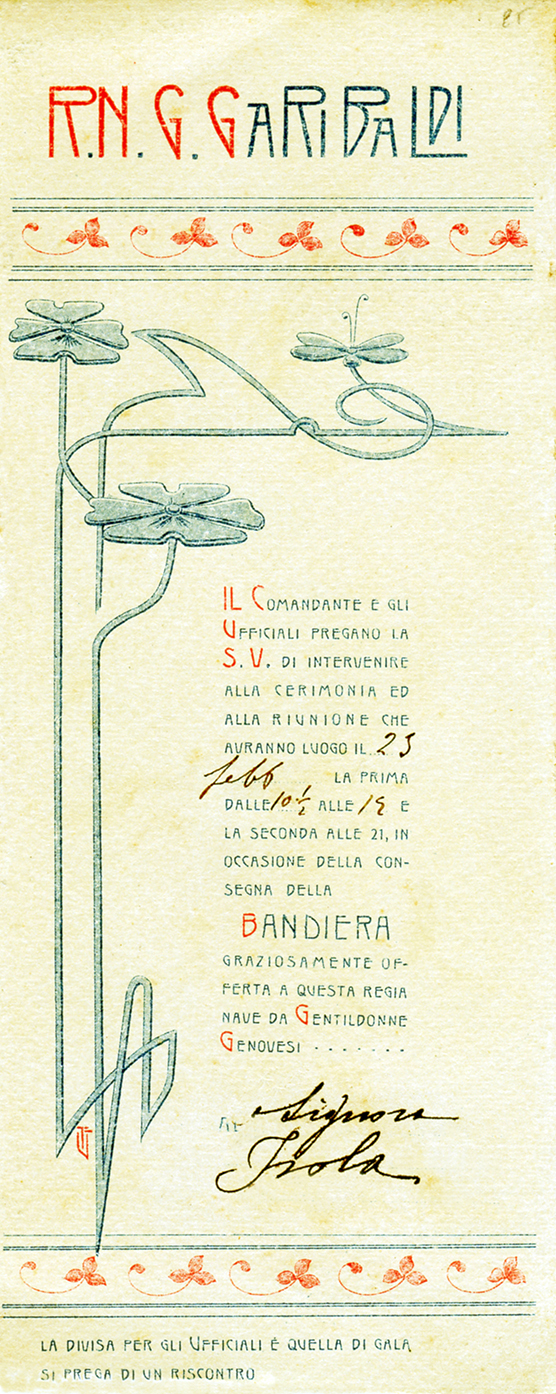 R.N. G. GARIBALDI
IL COMANDANTE E GLI
UFFICIALI PREGANO LA
S. V. DI INTERVENIRE
ALLA CERIMONIA ED
ALLA RIUNIONE CHE
AVRANNO LUOGO IL 23
febb LA PRIMA
DALLE 10 ½ ALLE 12 E
LA SECONDA ALLE 21, IN
OCCASIONE DELLA CON-
SEGNA DELLA
BANDIERA
GRAZIOSAMENTE OF-
FERTA A QUESTA REGIA
NAVE DA GENTILDONNE
GENOVESI . . . . . . .
Signora
Isola
LA DIVISA PER GLI UFFICIALI È QUELLA DI GALA
SI PREGA DI UN RISCONTRO